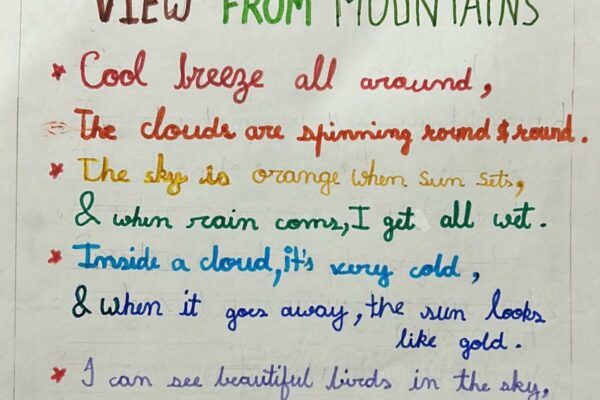 VIEW FROM MOUNTAINS
* Cool breeze all around,
The clouds are spinning round & round.
* The sky is orange when sun sets,
& when rain coms, I get all wet.
* Inside a cloud, it's very cold,
& when it goes away, the sun looks
like gold.
* I can see beautiful birds in the sky,